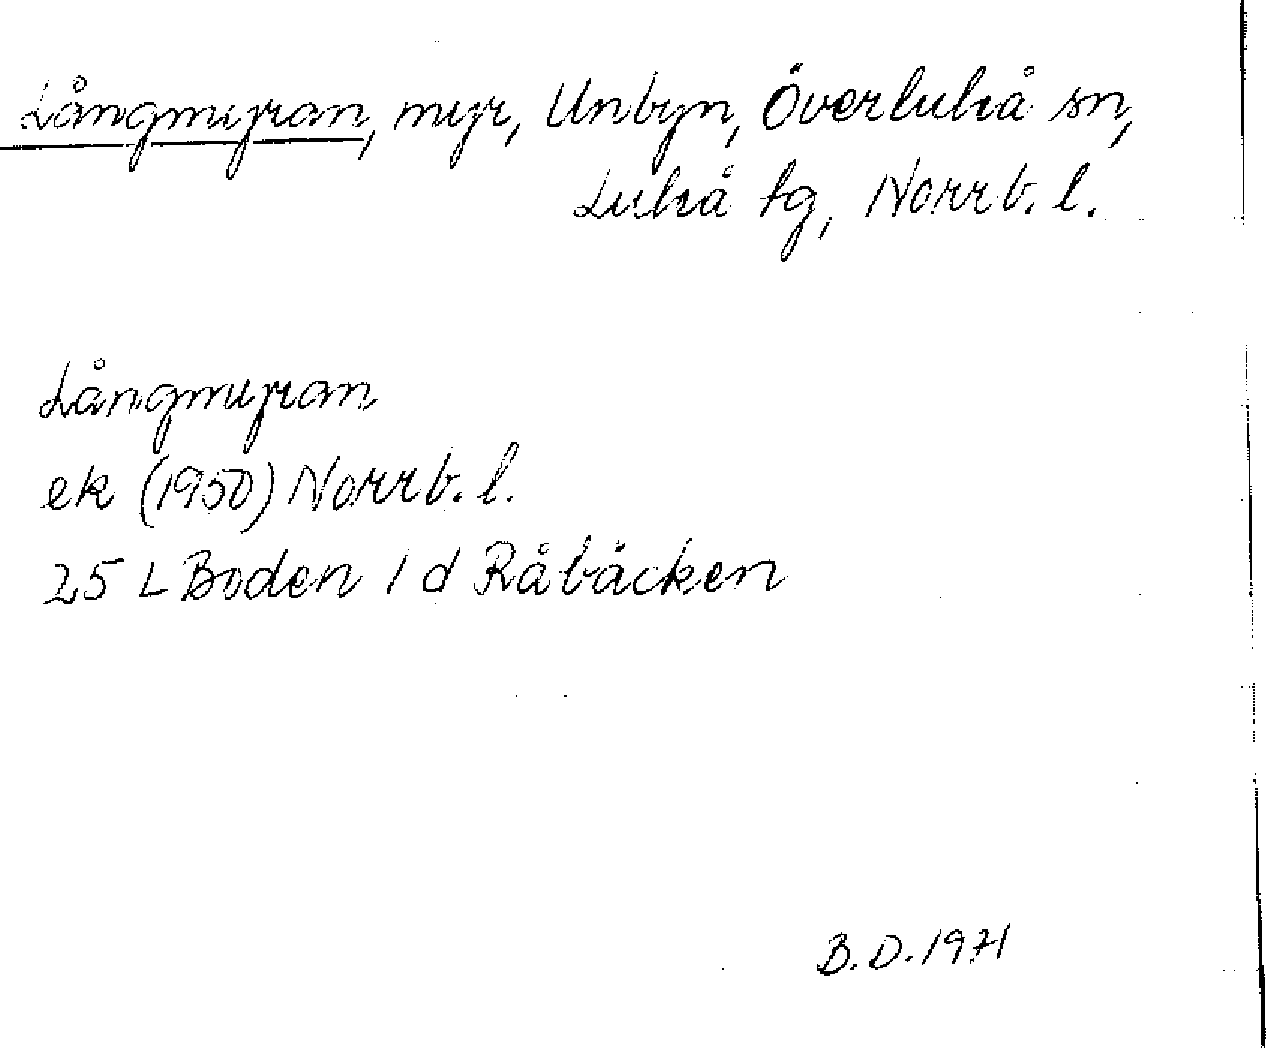 Långmyran, myr, Unbyn, Överluleå sn,
Luleå tg, Norrb. l.
Långmyran
ek (1950) Norrb. l.
25 L Boden 1 d Råbäcken
B.D. 1971